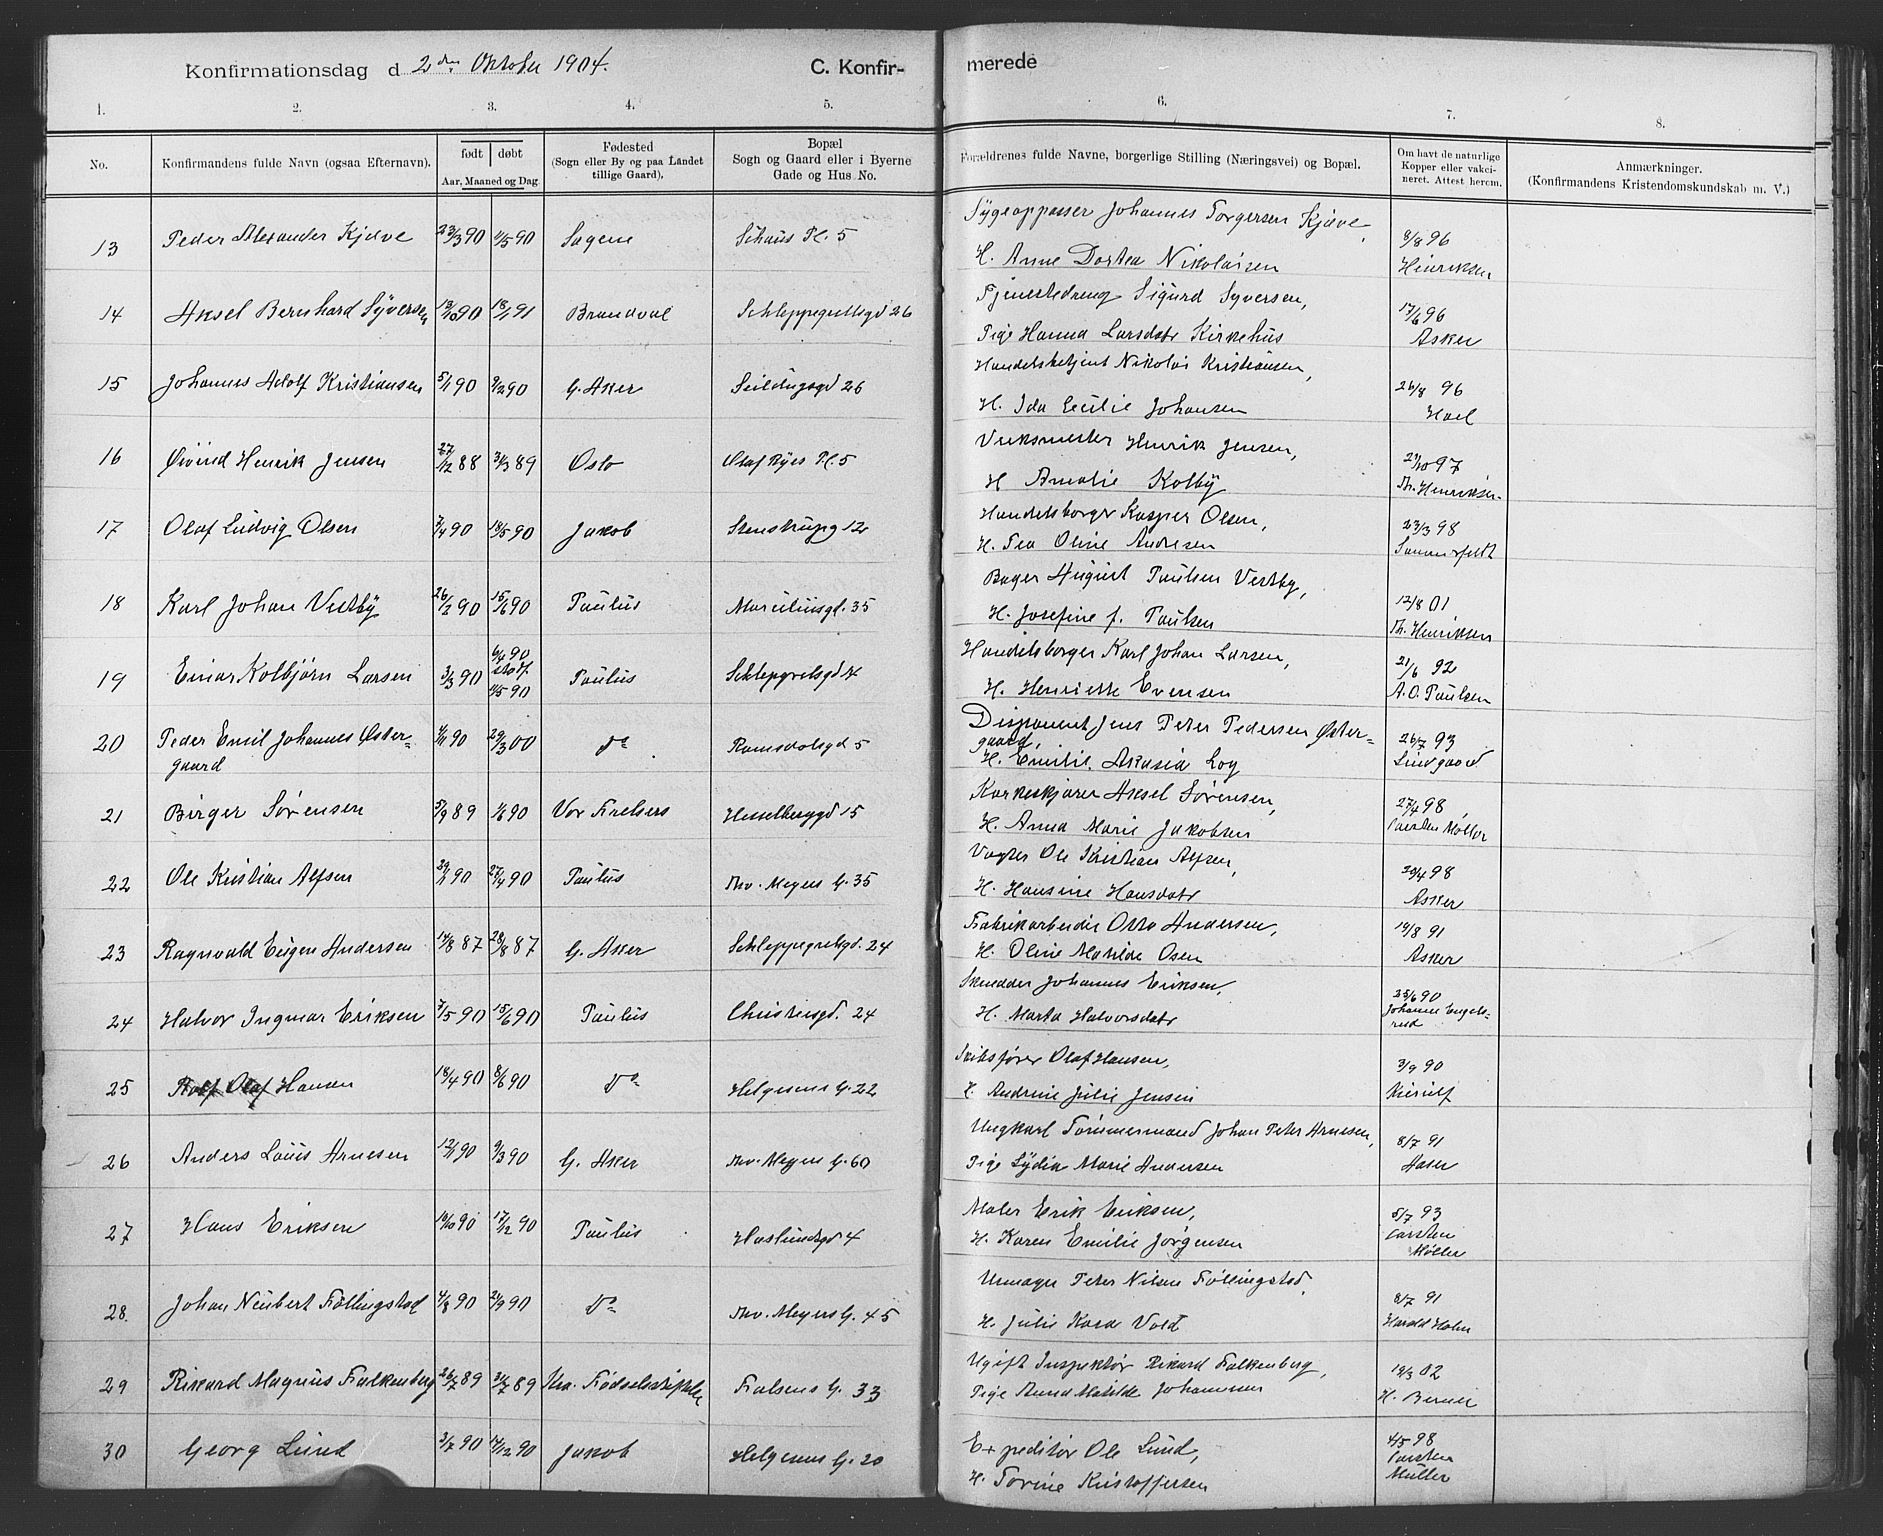 Konfirmationsdag d 2den Oktober 1904.
C. Konfir-
merede
1. 2. 3. 4. 5. 6. 7. 8.
No.
Konfirmandens fulde Navn (ogsaa Efternavn).
født | døbt
Aar, Maaned og Dag
Fødested
(Sogn eller By og paa Landet
tillige Gaard).
Bopæl
Sogn og Gaard eller i Byerne
Gade og Hus No.
Forældrenes fulde Navne, borgerlige Stilling (Næringsvei) og Bopæl.
Om havt de naturlige
Kopper eller vakci-
neret. Attest herom.
Anmærkninger.
(Konfirmandens Kristendomskundskab m. V.)
13 Peder Alexander Kjave 23/3 90 11/5 90 Sagene Schaus Pl. 5 Sygeopasser Johannes Torgersen Kjave, 8/8 96
H. Anne Dortea Nikolaisen Hinriksen
14 Aksel Bernhard Syversen 13/10 90 18/1 91 Brandval Schleppegrellsgd 26 Tjenestedreng Sigurd Syversen, 17/6 96
Pige Hanna Larsdatr Kirkehus Asker
15 Johannes Adolf Kristiansen 5/1 90 9/2 90 G. Aker Seildugsgd 26 Handelsbetjent Nikolai Kristiansen, 26/8 96
H. Ida Cecilie Johansen
16 Øivind Henrik Jensen 27/12 88 31/3 89 Oslo Olaf Ryes Pl. 5 Verksmester Henrik Jensen, 29/10 97
H Amalie Kolby Th. Henriksen
17 Olaf Ludvig Olsen 7/4 90 18/5 90 Jakob Stenstrupg 12 Handelsborger Kasper Olsen, 23/3 98
H. Tea Oline Andresen Sommerfeldt
18 Karl Johan Vestby 26/2 90 15/6 90 Paulus Marcelíusgd. 35 Bager August Paulsen Vestby, 12/8 01
H. Josefine f. Paulsen Th. Henriksen
19 Einar Kolbjørn Larsen 3/3 90 6/4 90 stadf. 11/5 90 Paulus Schleppgrelsgd 4 Handelsborger Karl Johan Larsen, 21/6 92
H. Henriette Evensen A. O. Paulsen
20 Peder Emil Johannes Øster= 4/11 90 29/3 00 do Ramsdalsgd 5 Disponent Jens Peter Pedersen Øster= 26/7 93
gaard gaard, H. Emilie Akasia Log Lindgaard
21 Birger Sørensen 5/9 89 1/6 90 Vor Frelsers Hesselberggd 15 Korkeskjærer Aksel Sørensen, 27/4 98
H. Anna Marie Jakobsen Carsten Møller
22 Ole Kristian Alfsen 29/1 90 27/4 90 Paulus Thv. Meyers G. 35 Vogter Ole Kristian Alfsen, 20/4 98
H. Hansine Hansdatr Asker
23 Ragnvald Eugen Andersen 14/8 87 28/8 87 G. Aker Schleppegrelsgd. 24 Fabrikarbeider Otto Andersen, 19/8 91
H. Oline Matilde Osen Asker
24 Halvor Ingmar Eriksen 7/5 90 15/6 90 Paulus Christiesgd. 24 Skrædder Johannes Eriksen, 25/6 90
H. Marta Halvorsdatr Johanne Engels=
rud
25 Rolf Olaf Hansen 18/4 90 8/6 90 do Helgesens G. 22 Skibsfører Olaf Hansen, 3/9 90
H. Andrine Julie Jensen Kierulf
26 Anders Louis Arnesen 12/1 90 9/3 90 G. Aker Thv. Meyers G. 60 Ungkarl Tømmermand Johan Peter Arnesen, 8/7 91
Pige Lydia Marie Andersen Aaser
27 Hans Eriksen 10/10 90 17/12 90 Paulus Haslundsgd 4 Maler Erik Eriksen, 5/7 93
H. Karen Emilie Jørgensen Carsten
Møller
28. Johan Neubert Føllingstad 4/8 90 21/9 90 do Thv. Meyers G. 45 Urmager Peter Nilsen Føllingstad, 8/7 91
H. Julie Kara Vold Harald Holm
29 Rikard Magnus Falkenberg 26/7 89 31/7 89 Kra. Fødselsstiftelse Falsens G. 33 Ugift Inspektør Rikard Falkenberg, 19/3 02
Pige Anna Matilde Johannesen H. Berner
30 Georg Lund 3/7 90 14/12 90 Jakob Helgesens G. 20 Expeditør Ole Lund, 4/5 98
H. Torine Kristoffersen Carsten
Müller